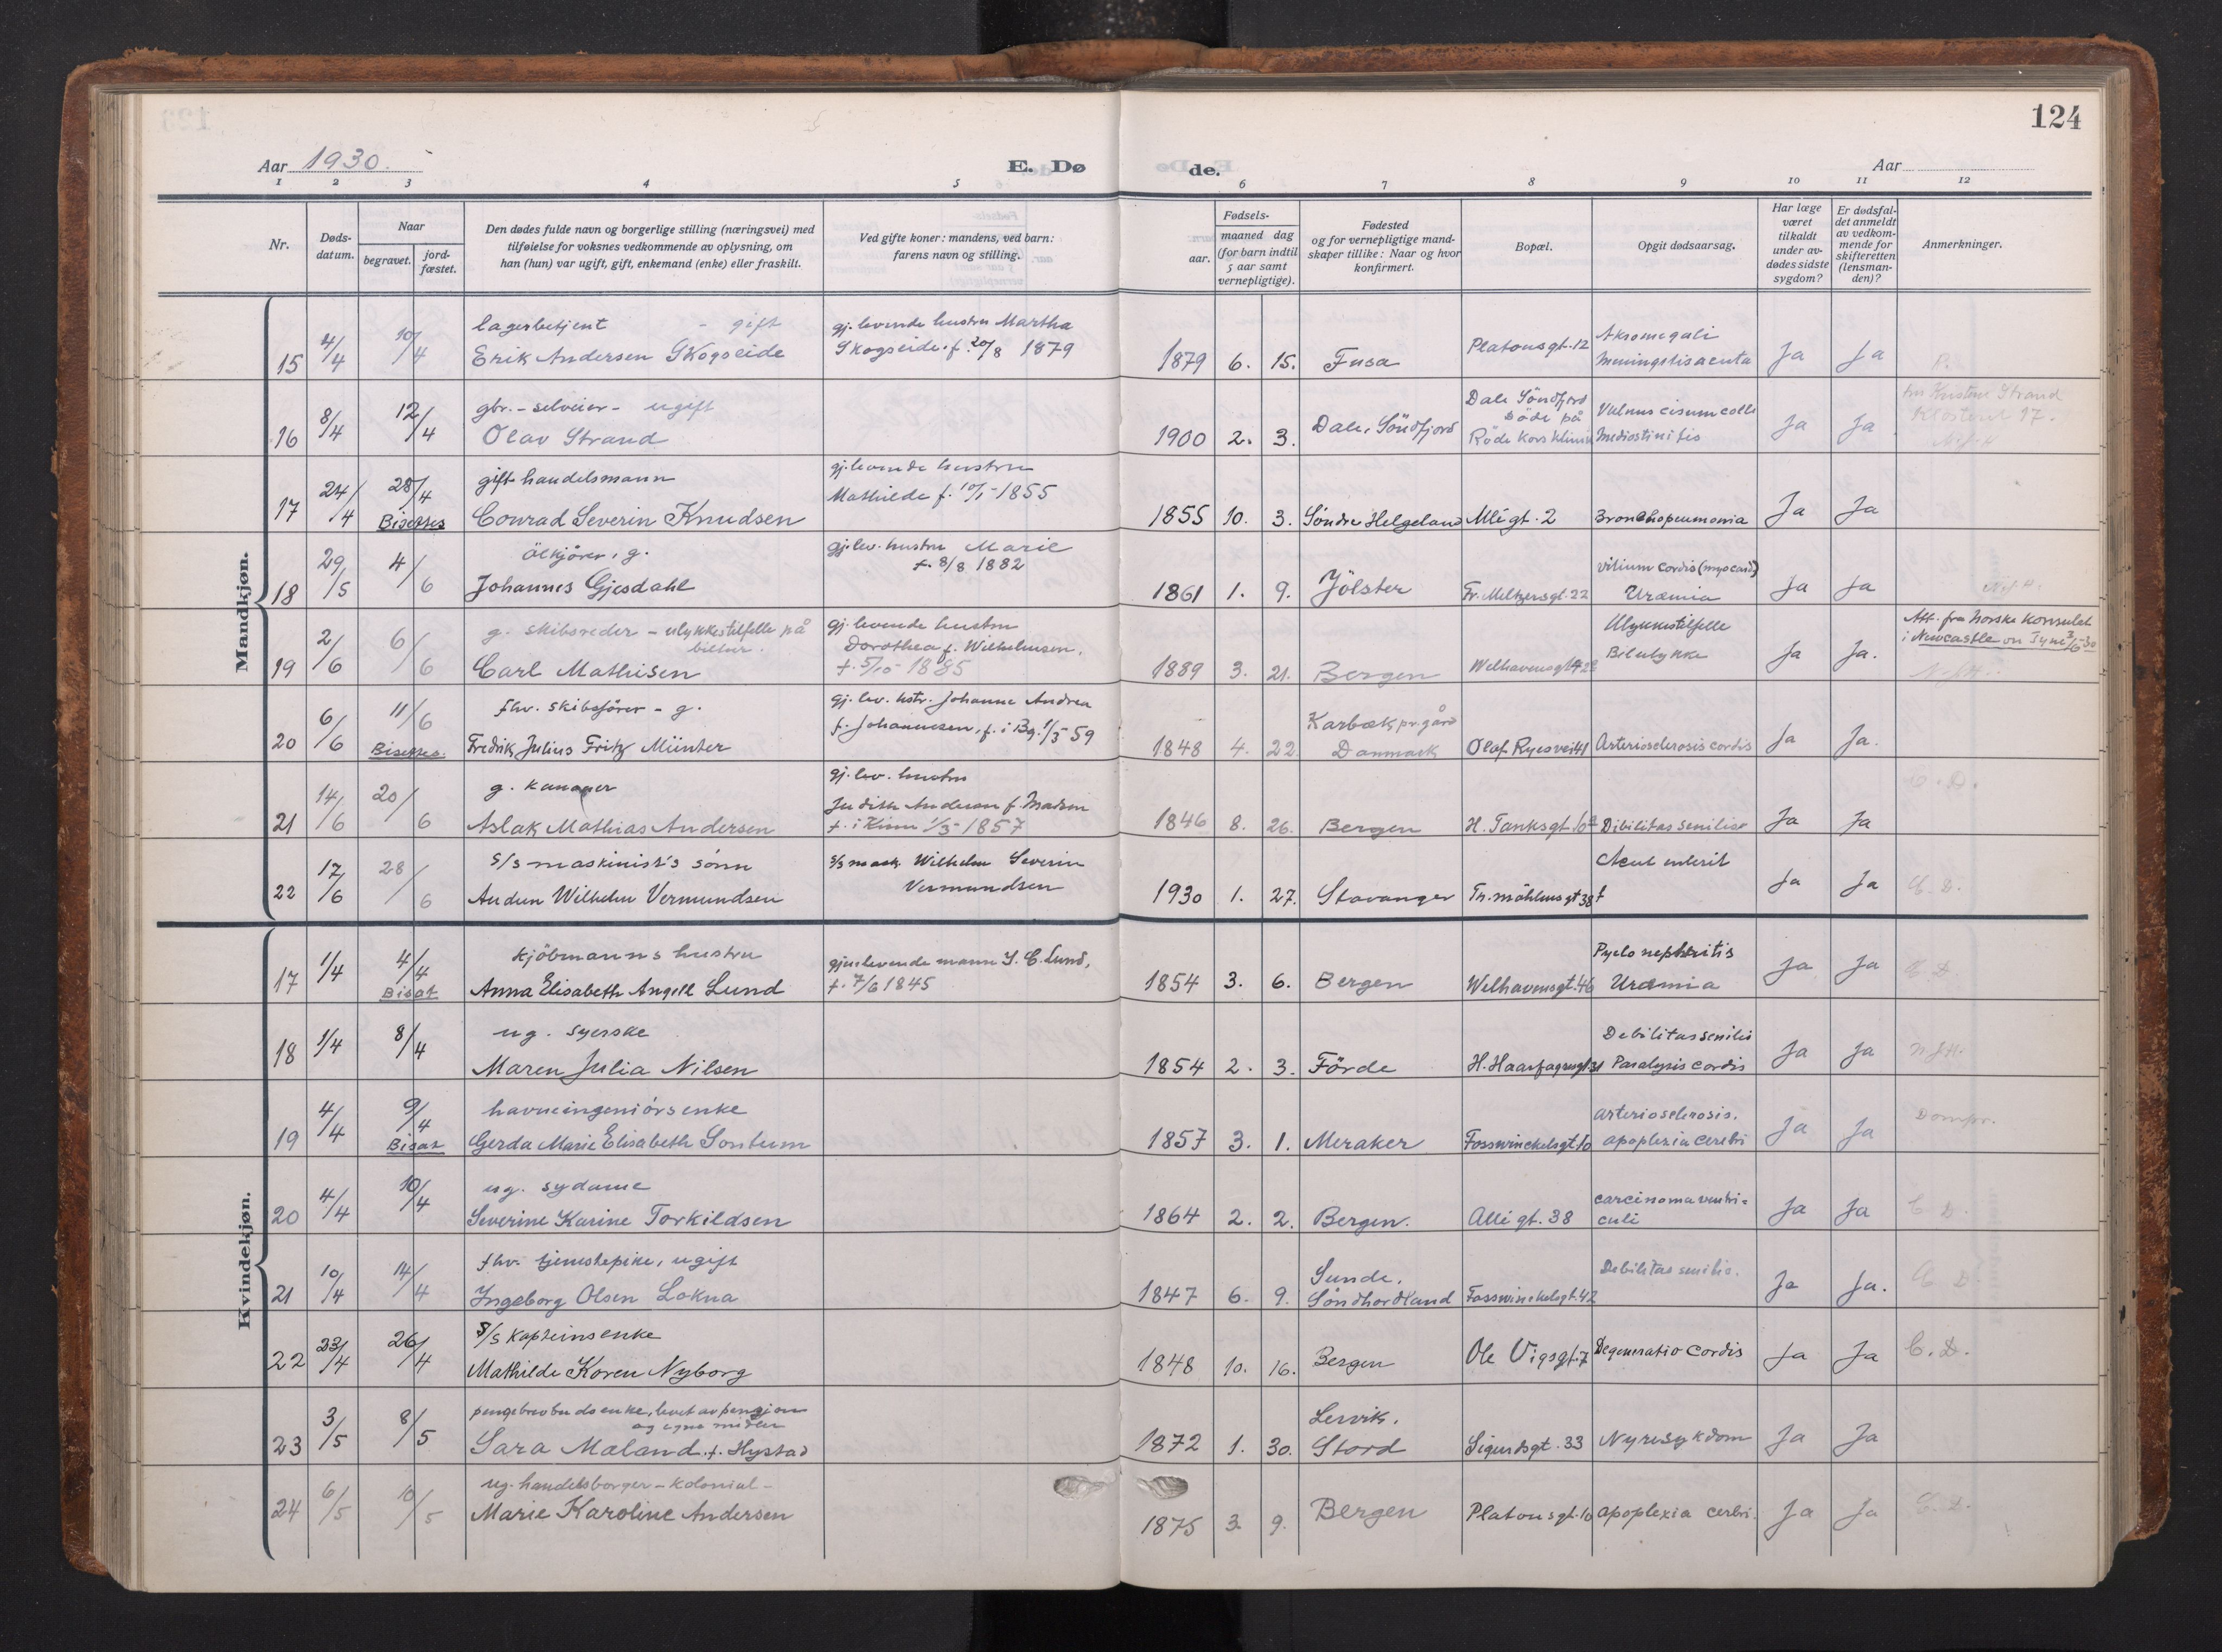 124
Aar 1930.
E. Dø
de.
Aar
1 2 3 4 5 6 7 8 9 10 11 12
Nr.
Døds-
datum.
Naar
begravet.
jord-
fæstet.
Den dødes fulde navn og borgerlige stilling (næringsvei) med
tilføielse for voksnes vedkommende av oplysning, om
han (hun) var ugift, gift, enkemand (enke) eller fraskilt.
Ved gifte koner: mandens, ved barn:
farens navn og stilling.
Fødsels-
aar.
maaned dag
(for barn indtil
5 aar samt
vernepligtige).
Fødested
og for vernepligtige mand-
skaper tillike: Naar og hvor
konfirmert.
Bopæl.
Opgit dødsaarsag.
Har læge
været
tilkaldt
under av-
dødes sidste
sygdom?
Er dødsfal-
det anmeldt
av vedkom-
mende for
skifteretten
(lensman-
den)?
Anmerkninger.
Mandkjøn.
lagerbetjent - gift
15 4/4 10/4 Erik Andersen Skogseide
gj. levende hustru Martha
Skogseide. f. 20/8 1879
1879 6. 15. Fusa
Platousgt. 12
Akromegali
Meningitis acuta
Ja Ja
gbr. - selveier - ugift
16 8/4 12/4 Olav Strand
1900 2. 3. Dale, Söndfjord
Dale Söndfjord
Döde på
Röde Kors Klinik
Vulnus cisum colli
Mediostinitis
Ja Ja
Strand
17.
gift handelsmann
17 24/4 28/4 Conrad Severin Knudsen
Bisettes
gj. levende hustru
Mathilde f. 10/1-1855
1855 10. 3. Söndre Helgeland
Allégt. 2
Bronchopneumonia
Ja Ja
ölkjörer, g.
18 29/5 4/6 Johannes Gjesdahl
gj. lev. hustru Marie
f. 8/8 1882
1861 1. 9. Jölster
Fr. Meltzersgt. 22
vitium cordis (myocard)
Uræmia
Ja Ja
g. skibsreder - ulykkestilfelle på
biltur.
19 2/6 6/6 Carl Mathisen
gj. levende hustru
Dorothea f. Wilhelmsen,
f. 5/10 1885
1889 3. 21. Bergen
Ulykkestilfelle
Bilulykke
Ja Ja.
Att. fra norske konsulat
i Newcastle on Tyne 3/6-30
fhv. skibsförer - g.
20 6/6 11/6 Fredrik Julius Fritz Münter
Bisettes.
gj. lev. hstr. Johanne Andrea
f. Johannesen, f. i Bg. 1/5 59
1848 4. 22. Karbæk pr.gård
Danmark
Olaf Ryesvei 41
Arteriosclerosis cordis
Ja Ja.
g. kanaaer
21 14/6 20/6 Aslak Mathias Andersen
gj. lev. hustru
Judith Andersen f. Madsen
f. i Kinn 1/3-1857
1846 8. 26. Bergen
H. Tanksgt. 10
Dibilitas senilis
Ja Ja
C. D.
S/S maskinist's sönn
22 17/6 28/6 Audun Wilhelm Vermundsen
S/S mask. Wilhelm Severin
Vermundsen
1930 1. 27. Stavanger
Th. möhlensgt 38
Acut enterit
Ja Ja
C. D.
Kvindekjøn.
kjöbmanns hustru
17 1/4 4/4 Anna Elisabeth Angell Lund
Bisat
gjenlevende mann J. C. Lund,
f. 7/6 1845
1854 3. 6. Bergen
Welhavensgt. 46
Pyelo nephritis
Uræmia
Ja Ja
C. D.
ug. syerske
18 1/4 8/4 Maren Julia Nilsen
1854 2. 3. Förde
H. Haarfagresgt 31
Debilitas senilis
Paralysis cordis
Ja Ja
havneingeniörs enke
19 4/4 9/4 Gerda Marie Elisabeth Sontum
Bisat
1857 3. 1. Meraker
Fosswinckelsgt. 10
Arteriosclerosis.
apoplexia cerebri
Ja Ja
Dompr.
ug. sydame
20 4/4 10/4 Severine Karine Torkildsen
1864 2. 2. Bergen.
Allégt. 38
carcinoma ventri-
culi
Ja Ja
C. D.
fhv. tjenestepike, ugift
21 10/4 14/4 Ingeborg Olsen Lokna
1847 6. 9. Sunde,
Söndhordland
Fosswinckelsgt. 42
Debilitas senilis.
Ja Ja.
C. D.
S/S kapteins enke
22 23/4 26/4 Mathilde Koren Nyborg
1848 10. 16. Bergen
Ole Vigsgt. 7
Degeneratio cordis
Ja Ja
C. D.
pengebrevbuds enke, levet av pensjon
og egne midler
23 3/5 8/5 Sara Maland f. Hystad
1872 1. 30. Lervik.
Stord
Sigurdsgt. 33
Nyresykdom
Ja Ja
ug. handelsborger - kolonial -
24 6/5 10/5 Marie Karoline Andersen
1875 3 9. Bergen
Platousgt. 10
apoplexia cerebri.
Ja Ja
C. D.